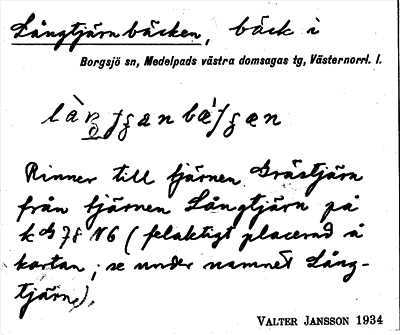 Långtjärnbäcken, bäck i
Borgsjö sn, Medelpads västra domsagas tg, Västernorrl. l.
Rinner till tjärnen Grästjärn
från tjärnen Långtjärn på
78 N6 (felaktigt placerad å
kartan; se under namnet Lång-
tjärn).
VALTER JANSSON 1934